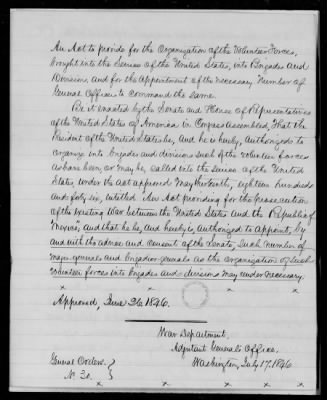 An Act to provide for the Organization of the Volunteer Forces,
brought into the Service of the United States, into Brigades and
Divisions, and for the Appointment of the necessary Number of
General Officers to Command the same.
Be it enacted by the Senate and House of Representatives
of the United States of America in Congress Assembled, That the
President of the United States be, and he is hereby, Authorized to
organize into brigades and divisions such of the volunteer forces
as have been or may be, called into the service of the United
States, under the act approved May thirteenth, eighteen hundred
and forty six, entitled An Act providing for the prosecution
of the existing War between the United States and the Republic of
Mexico", and that he be, and hereby is, authorized to Appoint, by
and with the advice and consent of the Senate, such number of
major generals and brigadier generals as the organization of such
volunteer forces into brigades and divisions may render necessary.
x x x x x
Approved, June 26, 1846.
War Department,
Adjutant General's Office,
Washington, July 17, 1846
General Orders }
No 30.
x x x x